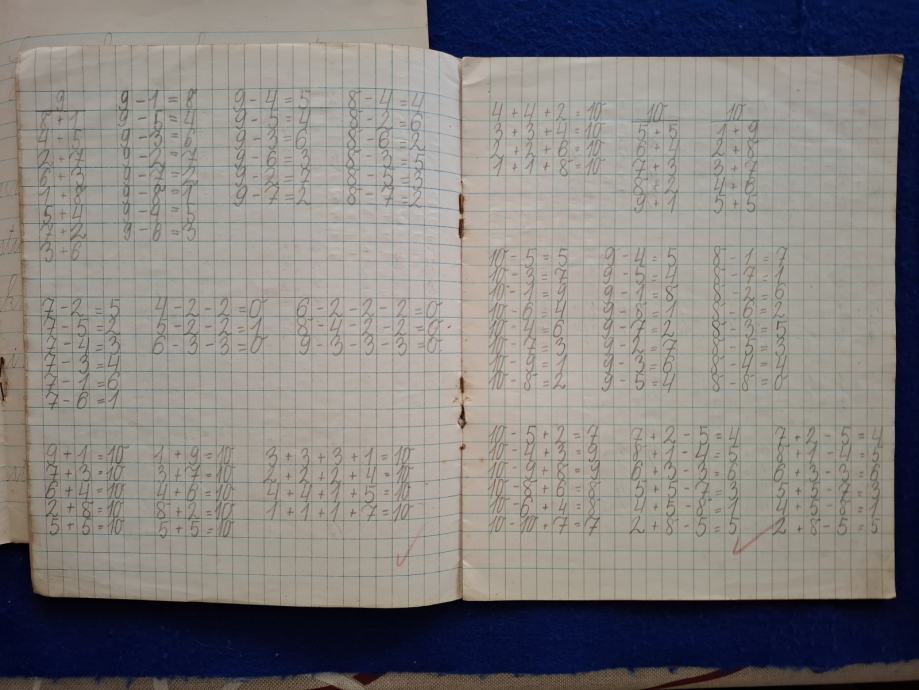 9 9-1=8 9-4=5 8-4=4
8+1 9-5=4 9-5=4 8-2=6
4+5 9-3=6 9-3=6 8-6=2
2+7 9-2=7 9-6=3 8-3=5
6+3 9-7=2 9-2=7 8-5=3
1+8 9-8=1 9-7=2 8-7=2
5+4 9-4=5
7+2 9-6=3
3+6
7-2=5 4-2-2=0 6-2-2-2=0
7-5=2 5-2-2=1 8-4-2-2=0
7-4=3 6-3-3=0 9-3-3-3=0
7-3=4
7-1=6
7-6=1
9+1=10 1+9=10 3+3+3+1=10
7+3=10 3+7=10 2+2+2+4=10
6+4=10 4+6=10 4+4+1+5=10
2+8=10 8+2=10 1+1+1+7=10
5+5=10 5+5=10
4+4+2=10 10 10
3+3+4=10 5+5 1+9
2+2+6=10 6+4 2+8
1+1+8=10 7+3 3+7
8+2 4+6
9+1 5+5
10-5=5 9-4=5 8-1=7
10-3=7 9-5=4 8-7=1
10-1=9 9-1=8 8-2=6
10-6=4 9-8=1 8-6=2
10-4=6 9-7=2 8-3=5
10-7=3 9-2=7 8-5=3
10-9=1 9-3=6 8-4=4
10-8=2 9-5=4 8-8=0
10-5+2=7 7+2-5=4 7+2-5=4
10-4+3=9 8+1-4=5 8+1-4=5
10-9+8=9 6+3-3=6 6+3-3=6
10-8+6=8 5+5-7=3 5+5-7=3
10-6+4=8 4+5-8=1 4+5-8=1
10-10+7=7 2+8-5=5 2+8-5=5